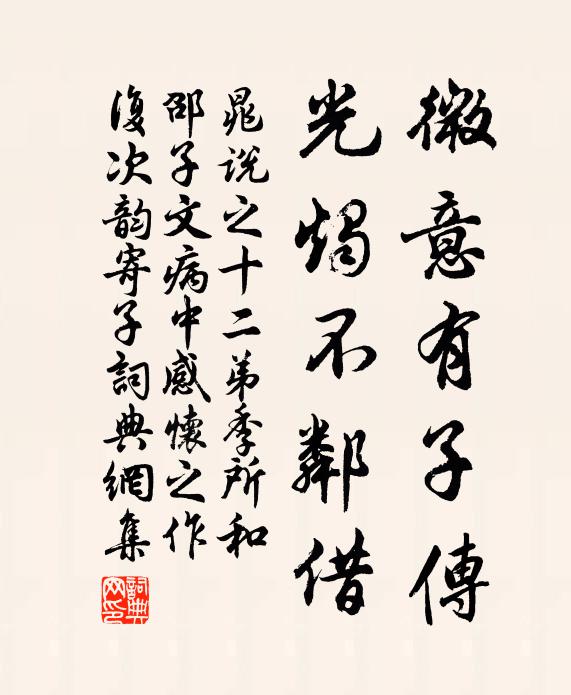 微意有子傳
光燭不鄰借
晁說之十二弟季所和
邵子文病中感懷之作
復次韵寄子詞典網集
詞典網印